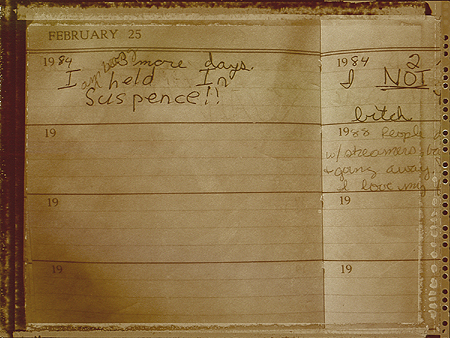 FEBRUARY 25
1984 3 more days.
I am held In
Suspence!!
19
19
19
1984 2
I NOT
bitch
1988 People
w/ streamers,
+ going away
I love my
19
19